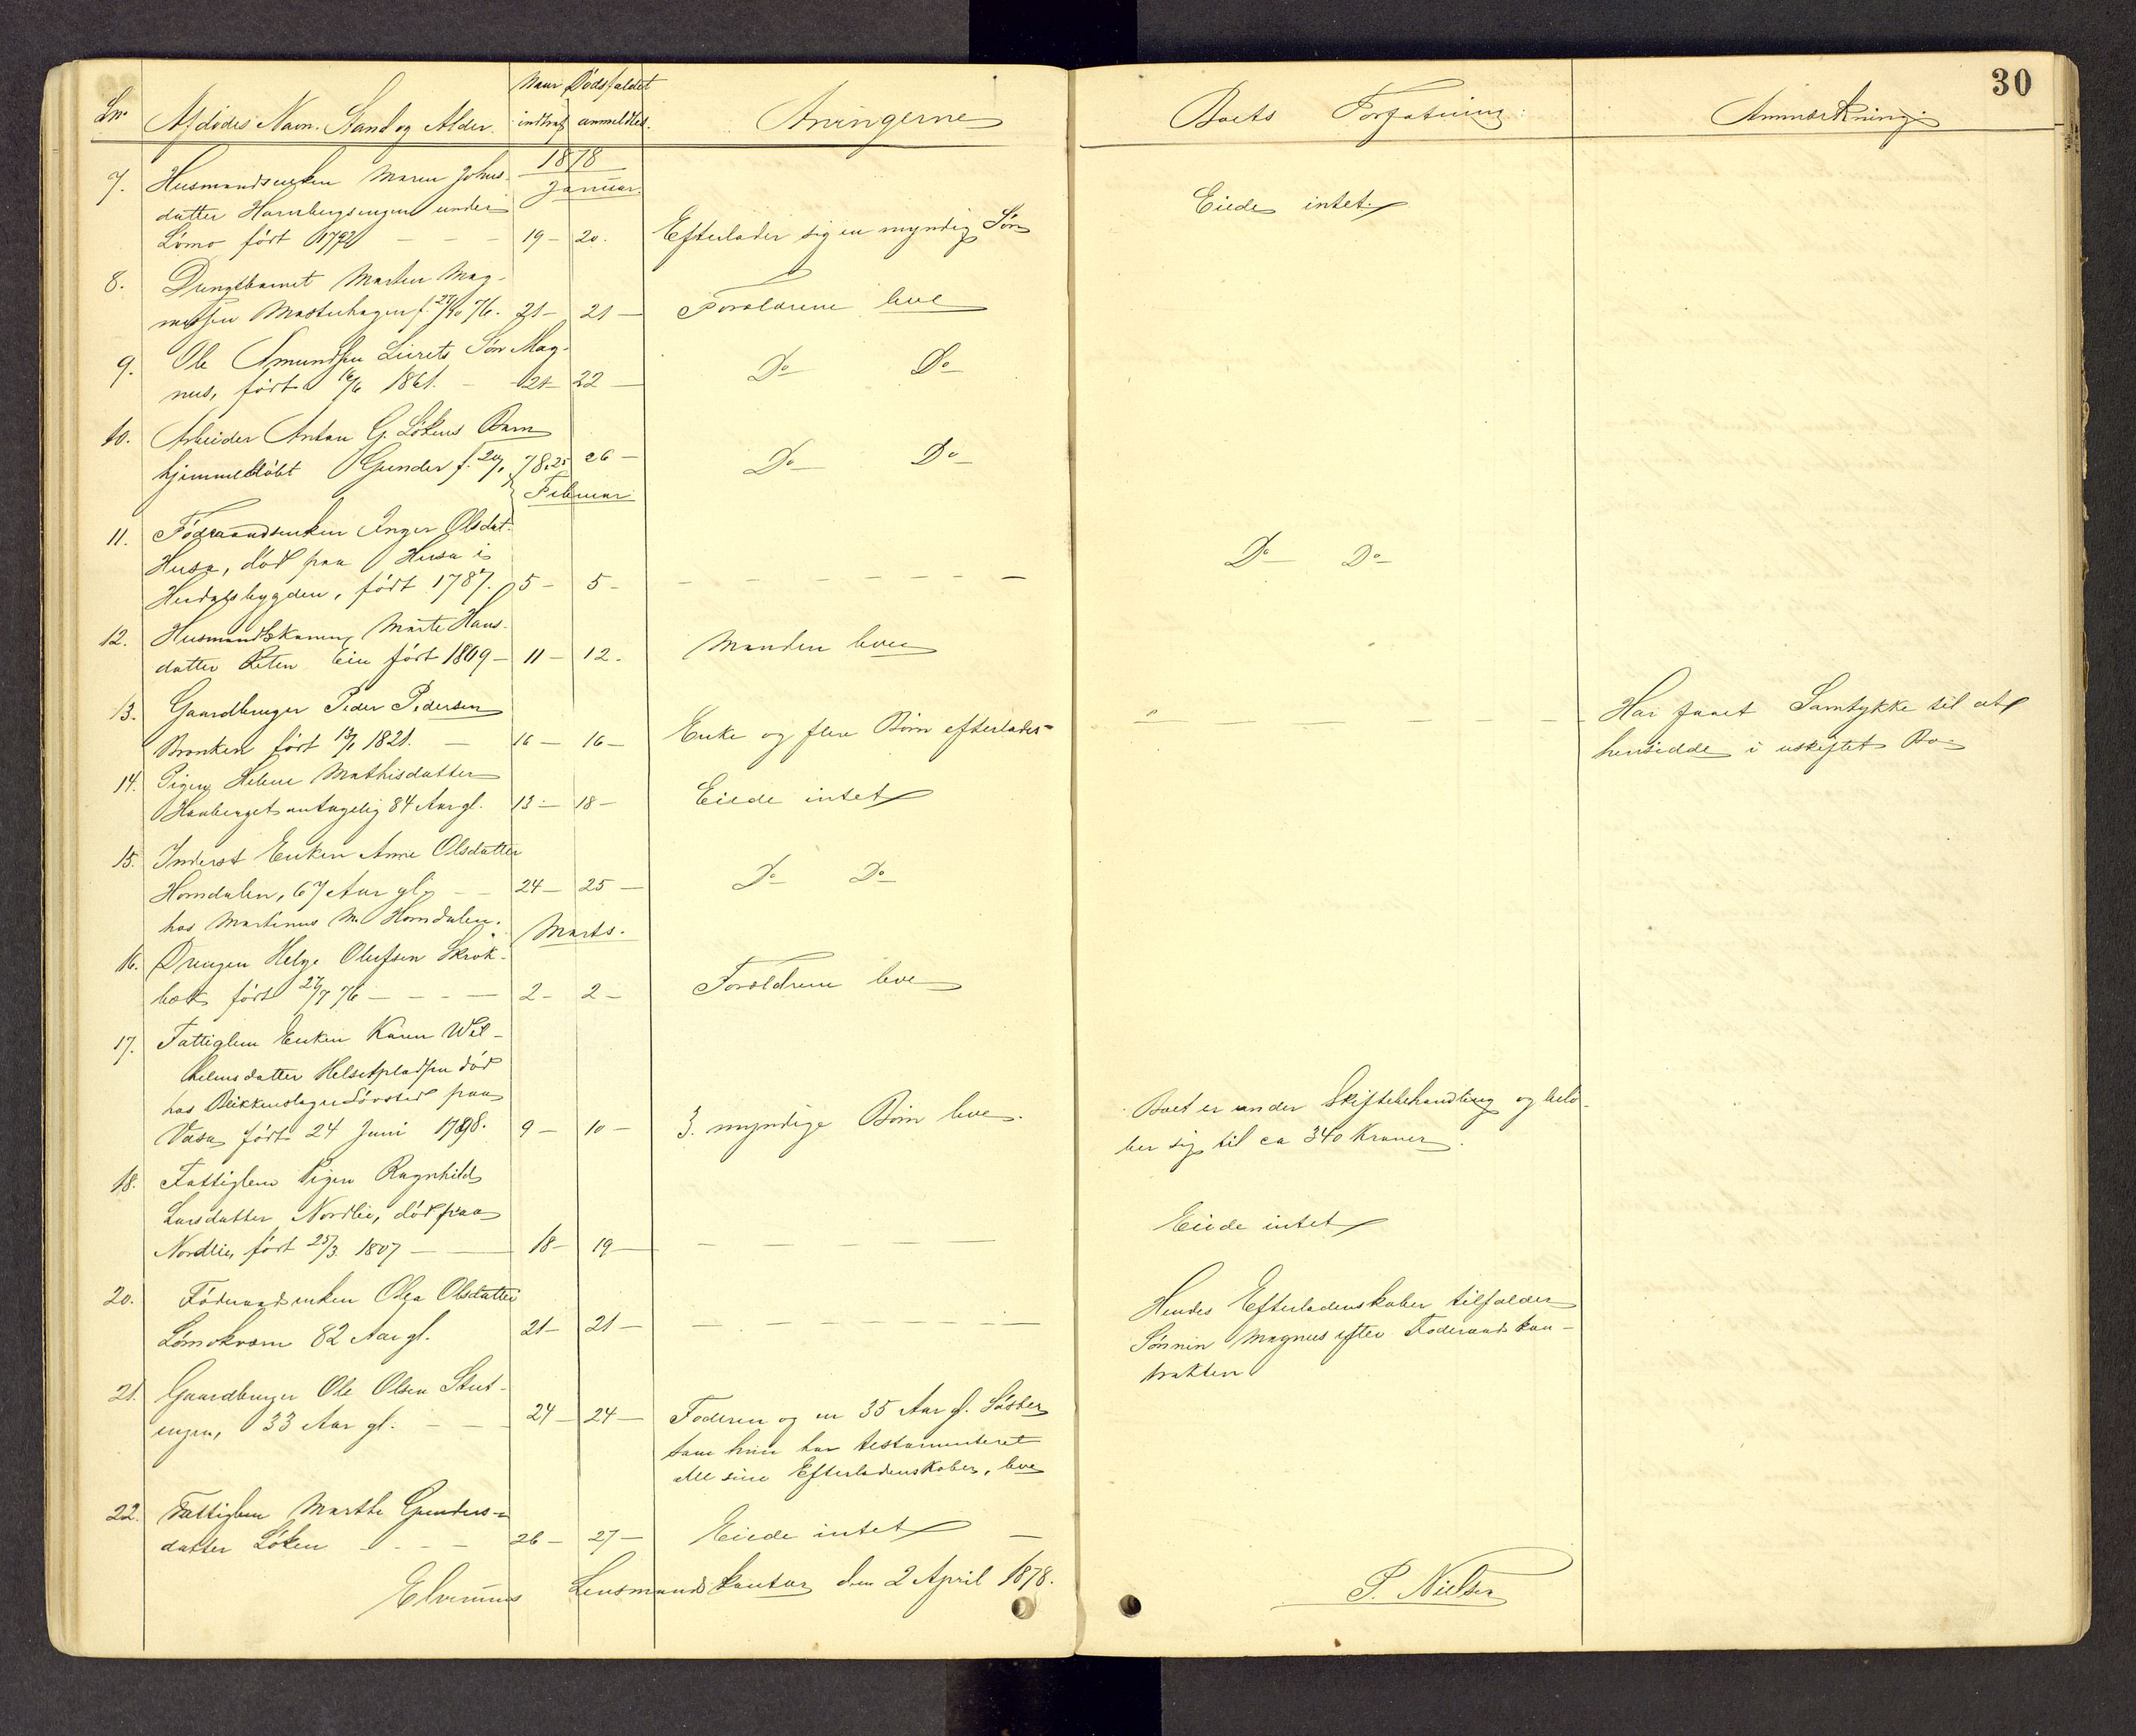 30
Naar Dødsfaldet
Lnr. Afdødes Navn. Stand og Alder. indtraf anmeldtes. Arvingerne Boets Forfatning Anmærkning
1878
Januar
7. Husmandsenken Maren Johns-
datter Harnbergsengen under
Lømo født 1792 19 - 20. Efterlader sig en myndig Søn Eiede intet
8. Drengebarnet Martin Mag-
nussen Masterhagen f. 76. 21 - 21 - Forældrene leve
9. Ole Amundsen Leirets Søn Mag-
nus, født 16/6 1861. - 21 - 22 - Do Do
10. Arbeider Anton G. Løkens Barn
hjemmedøbt Gunder f. 20/1 78. 25 26 - Do Do
Februar
11. Føderaadsenken Inger Olsdat.
Husa, død paa Husa i
Hernæsbygden, født 1787. 5 - 5 - Do Do
12. Husmandskonen Marte Hans-
datter Eie født 1809 - 11 - 12. Manden lever
13. Gaardbruger Peder Pedersen
Brænken født 13/1 1821. - 16 - 16 - Enke og flere Børn efterlades - Har faaet Samtykke til at
hensidde i uskiftet Bo
14. Pigen Helene Mathisdatter
Hanberget antagelig 84 Aar gl. 13 - 18 - Eiede intet
15. Inderst Enken Anne Olsdatter
Horndalen, 67 Aar gl. - 24 - 25 - Do Do
hos Martinus M. Horndalen.
Marts.
16. Drengen Helge Olufsen Skrøk-
bæk født 27/7 76 - 2 - 2 - Forældrene leve
17. Fattiglem Enken Karen Wil-
helmsdatter Helsetpladsen død
hos Blikkenslager Søvsted paa
Vasa, født 24 Juni 1798. 9 - 10 - 3. myndige Børn leve. Boet er under Skiftebehandling og belø-
ber sig til ca 340 Kroner.
18. Fattiglem Pigen Ragnhild
Larsdatter Nordlie, død paa
Nordlie, født 25/3 1807 - 18 - 19 - Eiede intet
20. Føderaadsenken Olea Olsdatter
Lømokværn 82 Aar gl. 21 - 21 - Hendes Efterladenskaber tilfalder
Sønnen Magnus efter Føderaadskon-
trakten
21. Gaardbruger Ole Olsen Stut-
engen, 33 Aar gl. - 24 - 24 - Faderen og en 35 Aar gl. Søster
som han har testamenteret
alle sine Efterladenskaber, leve
22. Fattiglem Marthe Gunders-
datter Løken - 26 - 27 - Eiede intet -
Elverums Lensmandskontor den 2 April 1878.
P. Nielsen